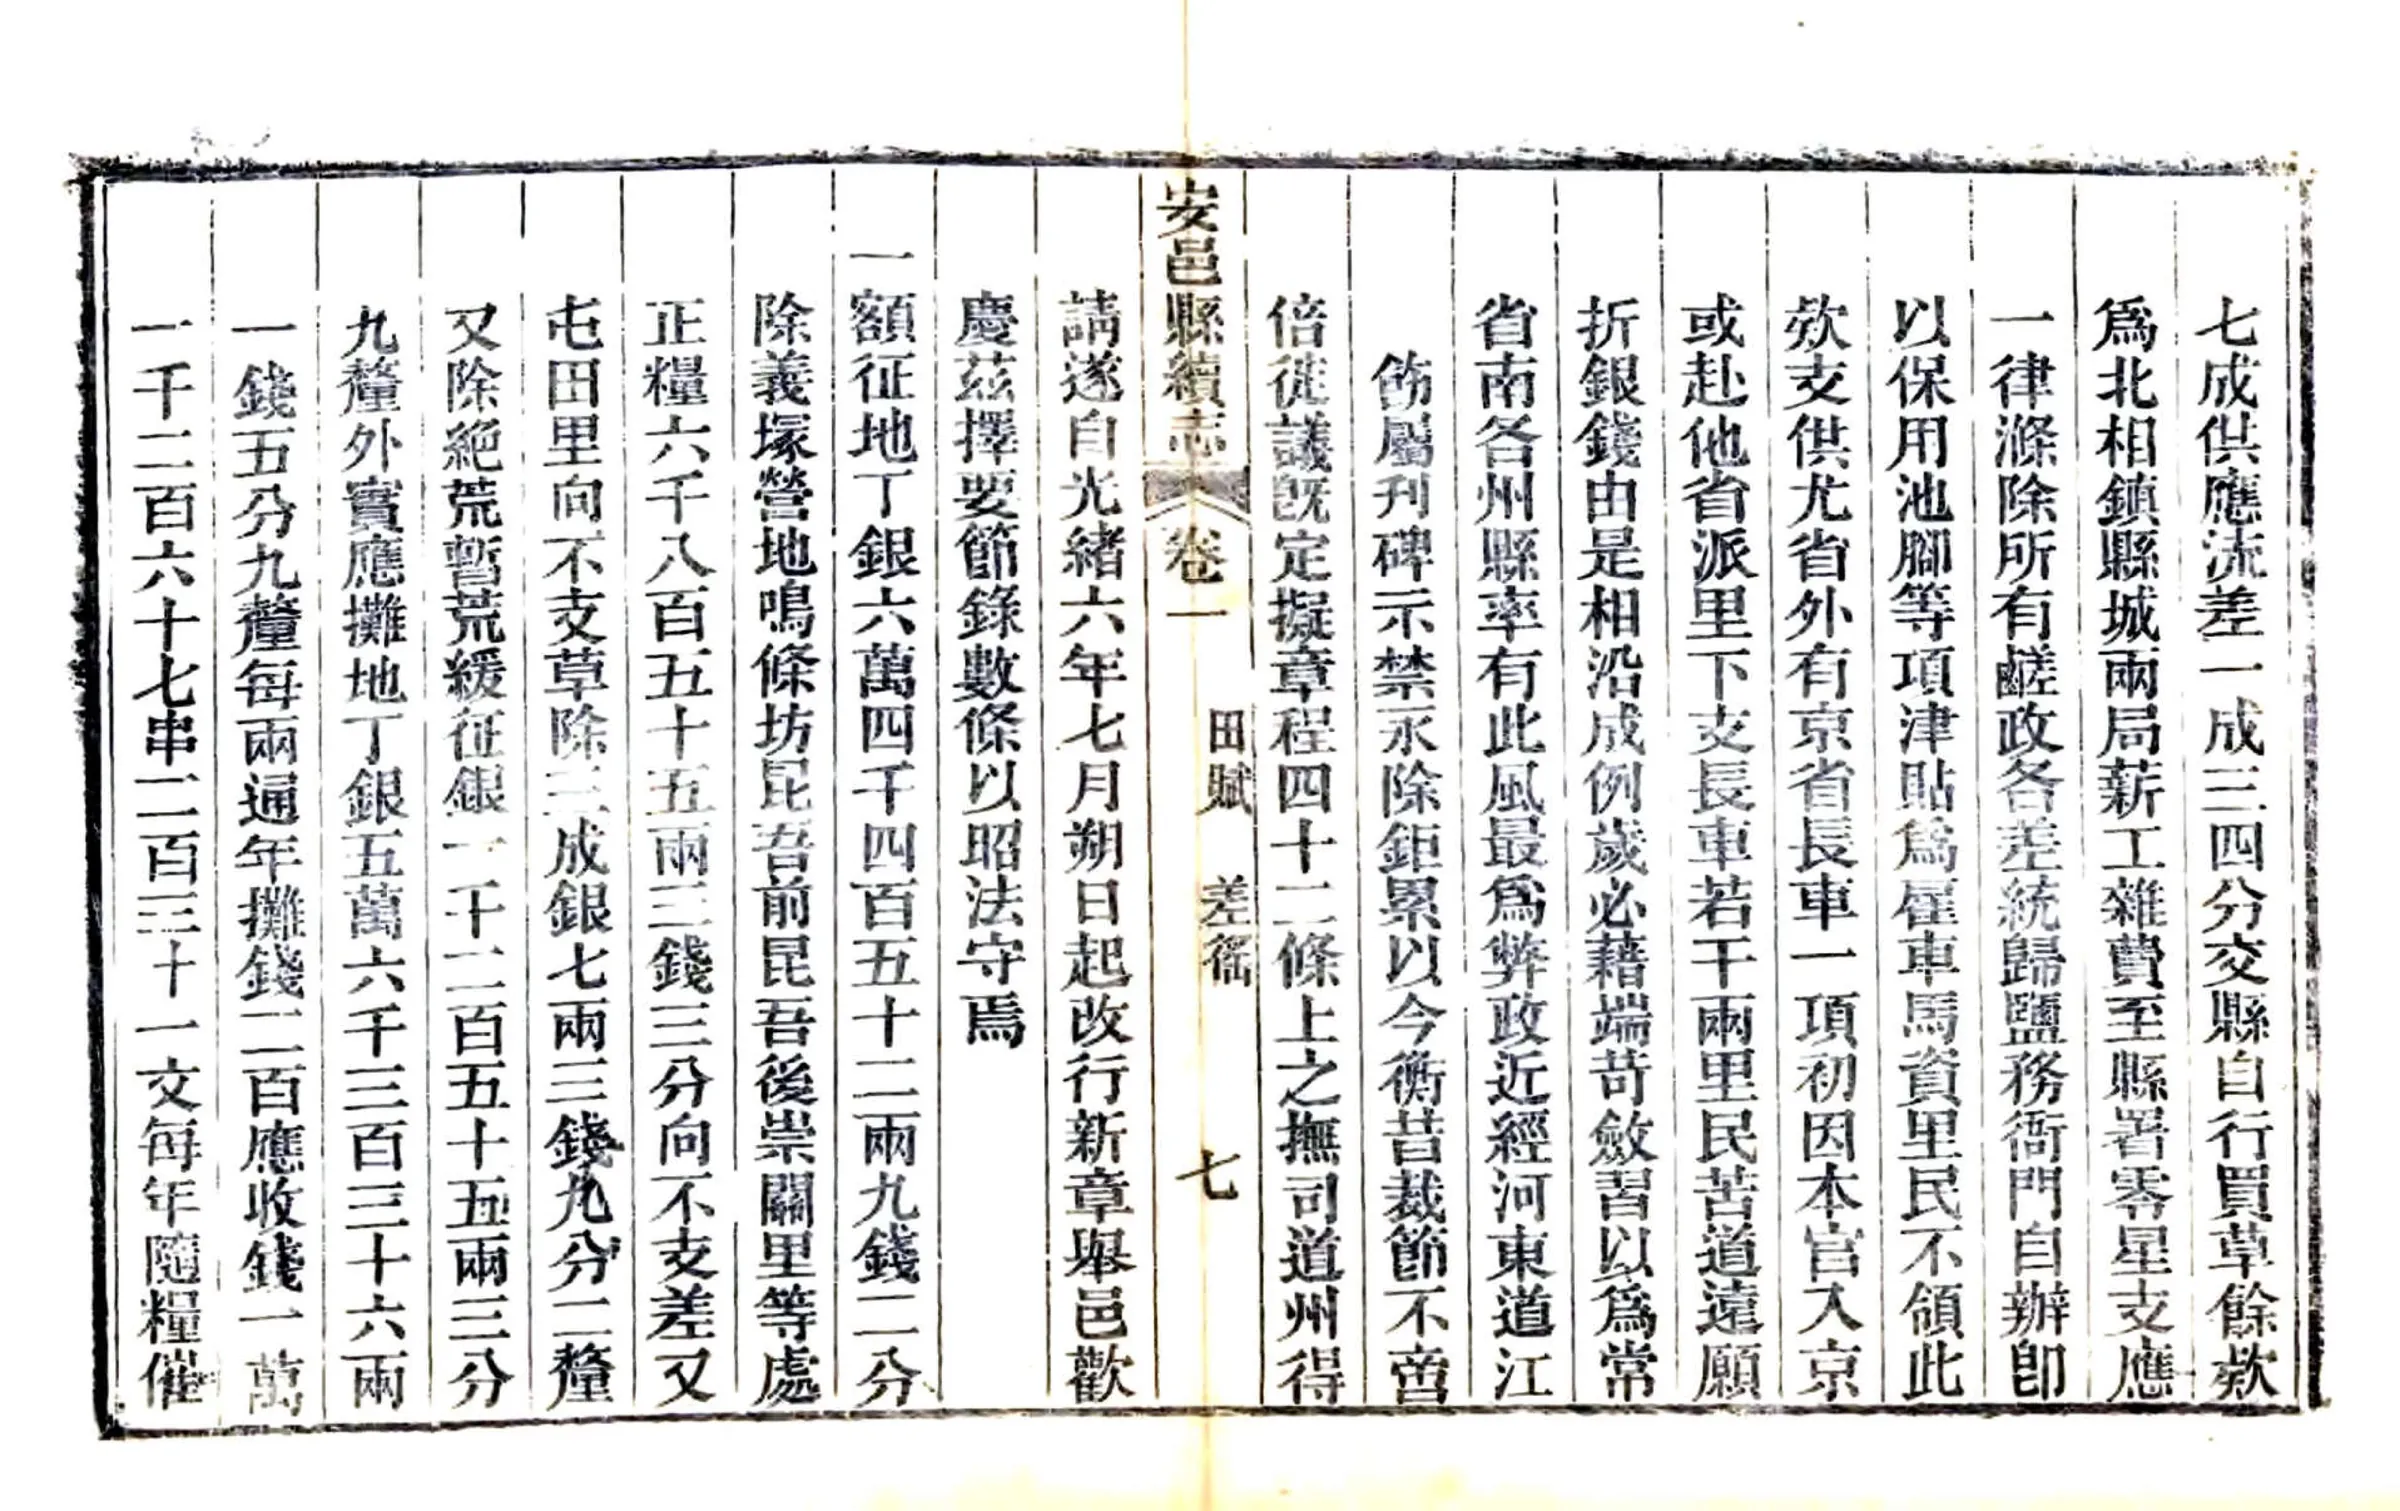 七成供應流差一成三四分交縣自行買草餘欵
爲北相鎮縣城兩局薪工雜費至縣署零星支應
一律滌除所有鹺政各差統歸鹽務衙門自辦卽
以保用池腳等項津貼爲雇車馬資里民不領此
欵支供尤省外有京省長車一項初因本官入京
或赴他省派里下支長車若干兩里民苦道遠願
折銀錢由是相沿成例歲必藉端苛斂習以爲常
省南各州縣率有此風最爲弊政近經河東道江
飭屬刊碑示禁永除鉅累以今衡昔裁節不啻
倍徙議旣定擬章程四十二條上之撫司道州得
安邑縣續志 卷一 田賦 差徭 七
請遂自光緒六年七月朔日起改行新章舉邑歡
慶茲擇要節錄數條以昭法守焉
一額征地丁銀六萬四千四百五十二兩九錢二分
除義塚營地鳴條坊昆吾前昆吾後崇關里等處
正糧六千八百五十五兩三錢三分向不支差又
屯田里向不支草除三成銀七兩三錢九分二釐
又除絶荒暫荒緩征銀一千二百五十五兩三分
九釐外實應攤地丁銀五萬六千三百三十六兩
一錢五分九釐每兩通年攤錢二百應收錢一萬
一千二百六十七串二百三十一文每年隨糧催